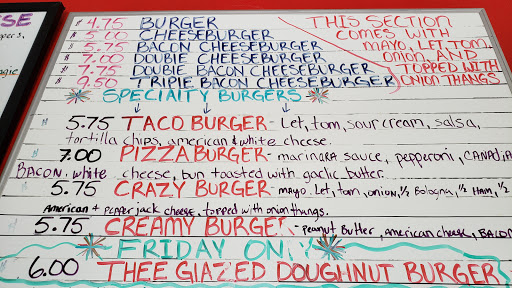 SE
$ 4.75 BURGER
$ 5.00 CHEESEBURGER
$ 5.75 BACON CHEESEBURGER
$ 7.00 DOUBLE CHEESEBURGER
$ 7.75 DOUBLE BACON CHEESEBURGER
$ 9.50 TRIPLE BACON CHEESEBURGER
THIS SECTION
COMES WITH
MAYO, LET, TOM,
ONION, AND
TOPPED WITH
ONION THANGS
SPECIALTY BURGERS
$ 5.75 TACO BURGER - Let, tom, sour cream, salsa,
tortilla chips, american & white cheese.
$ 7.00 PIZZA BURGER - marinara sauce, pepperoni, CANADIA
BACON, white cheese, bun toasted with garlic butter.
$ 5.75 CRAZY BURGER - mayo, Let, tom, onion, ½ Bologna, ½ HAM, ½
American + Pepper jack cheese, topped with onion thangs.
$ 5.75 CREAMY BURGER - Peanut Butter, american cheese, BACON
FRIDAY ONLY
6.00 THEE GLAZED DOUGHNUT BURGER